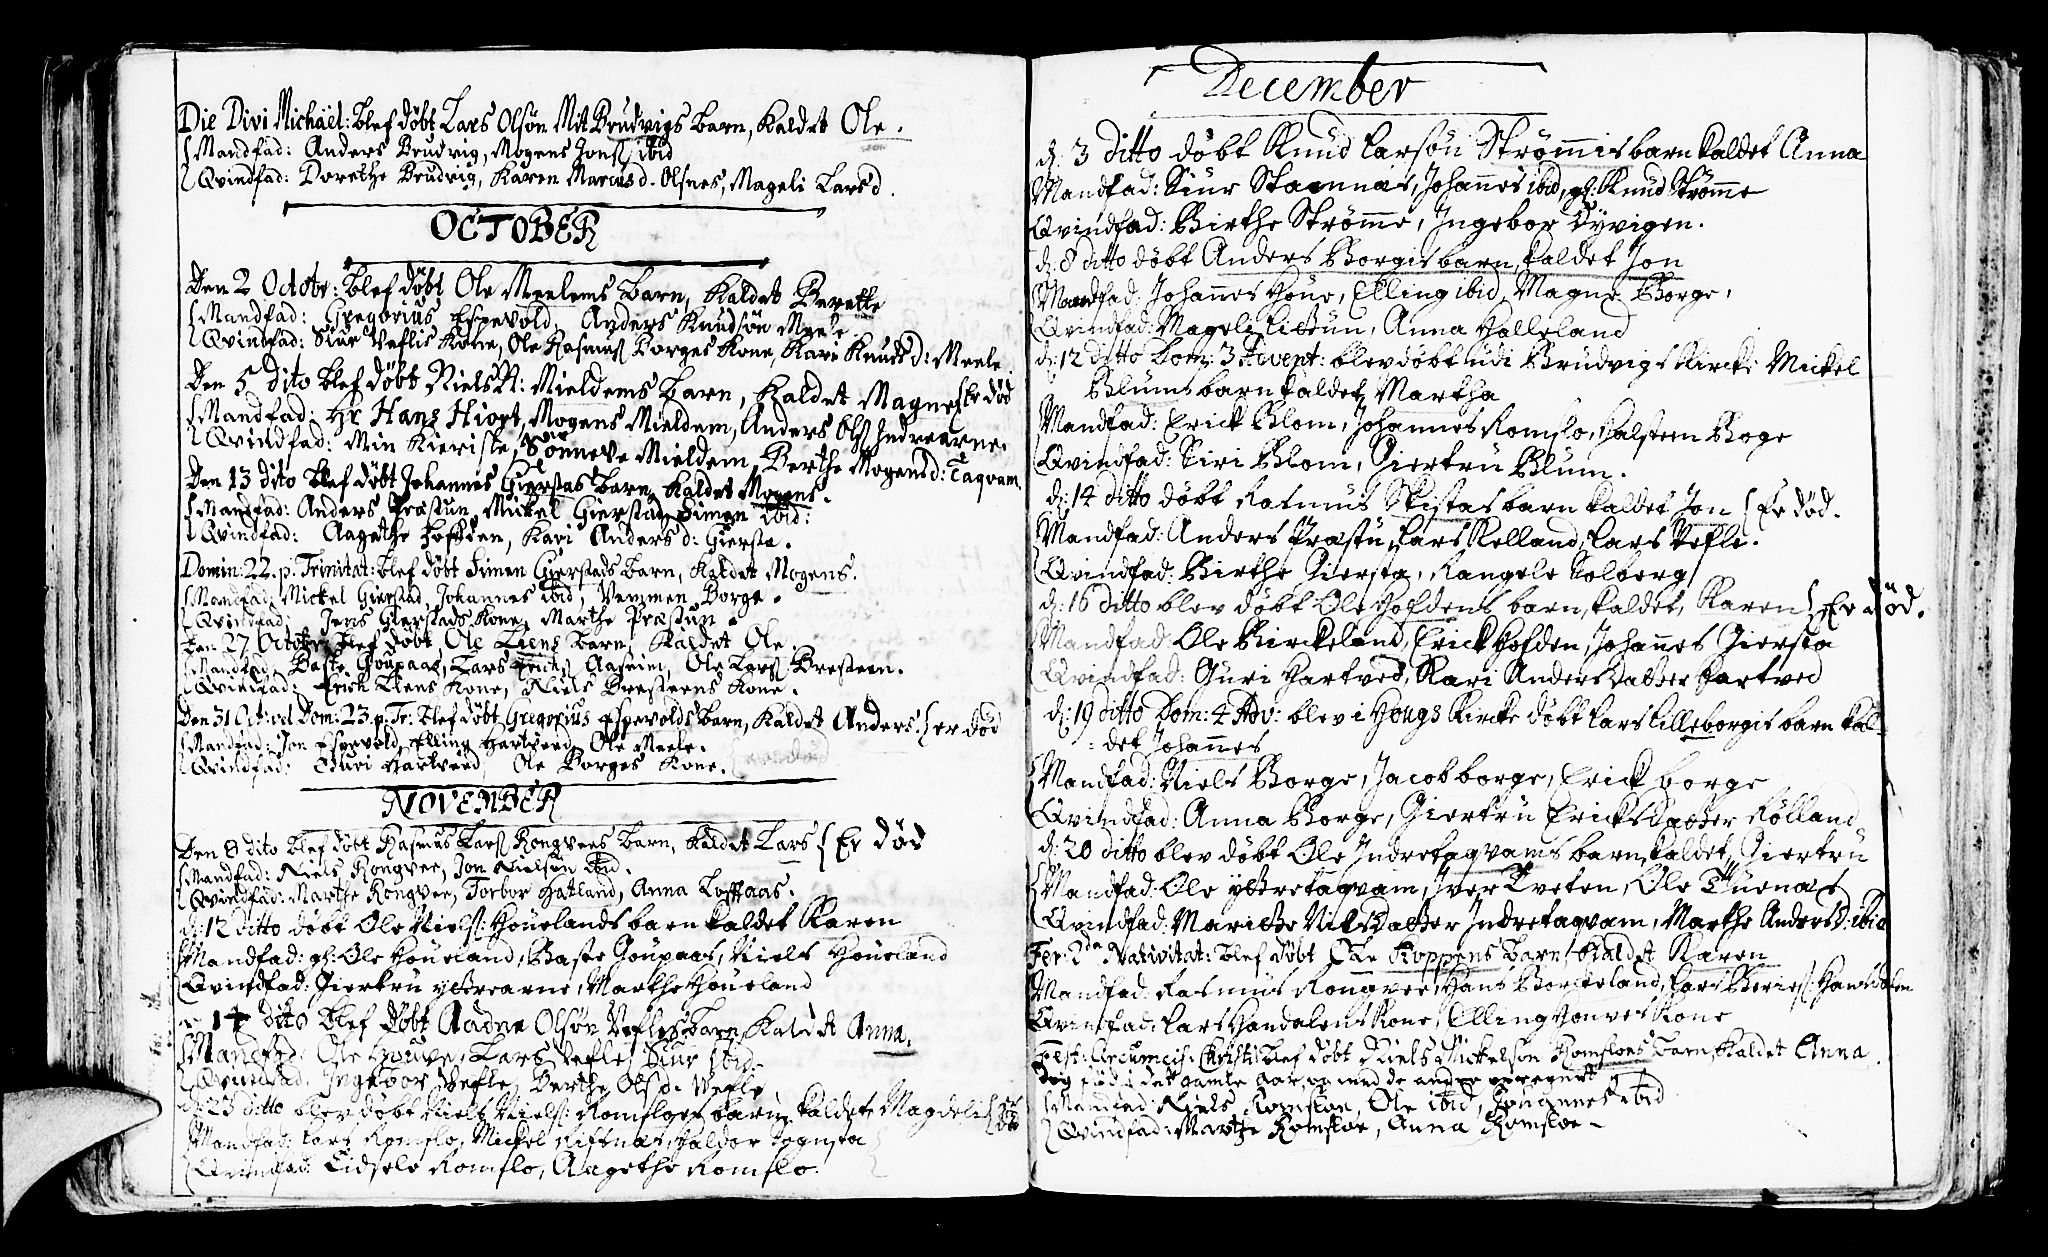 Die Divi Michaël: blef døbt Lars Olsøn Mit Brudvigs barn, kaldet Ole.
Mandfad: Anders Brudvig, Mogens Jons ibid
Qvindfad: Dorethe Brudvig, Karen Marcusd. Olsnes, Mageli Larsd.
OCTOBER
Den 2 Octobr: blef døbt Ole Meelems barn, kaldet Berette
Mandfad: Gregorius Espevold, Anders Knudsøn Meele.
Qvindfad: Siur Veflis Kone, Ole Rasmus Borges Kone, Kari Knudsd: Meele.
Den 5 dito blef døbt Niels A: Mieldems barn, kaldet Magne er død
Mandfad: Hr Hans Hiort, Mogens Mieldem, Anders Ols Indrearne.
Qvindfad: Min Kieriste, Sønneve Mieldem, Berthe Mogensd: Taqvam.
Den 13 dito blef døbt Johannes Gierstas barn, kaldet Mogens.
Mandfad: Anders Præstun, Mickel Gierstad, Simen ibid:
Qvindfad: Aagathe Hofden, Kari Andersd: Giersta.
Domin: 22. p. Trinitat: blef døbt Simen Gierstads barn, kaldet Mogens.
Mandfad: Mickel Gierstad, Johannes ibid, Vemmen Borge.
Qvindfad: Jens Gierstads Kone, Marthe Præstun.
Den 27 Octobr blef døbt Ole Liens barn, kaldet Ole.
Mandfad: Baste Goupaas, Lars Ericks Aaseim, Ole Lars Bresteen.
Qvindfad: Erich Liens Kone, Niels Bresteens Kone.
Den 31 Oct: vel Dom: 23. p. Tr: blef døbt Gregorius Espevolds barn, kaldet Anders. er død
Mandfad: Jon Espevold, Elling Hartveed, Ole Meele.
Qvindfad: Guri Hartveed, Ole Borges Kone.
NOVEMBER
Den 8 dito blef døbt Rasmus Lars Rongvees barn, kaldet Lars Er død
Mandfad: Niels Rongvee, Jon Nielsøn ibid.
Qvindfad: Marthe Rongvee, Torbor Hatland, Anna Loftaas.
d: 12 ditto døbt Ole Niels: Houelands barn kaldet Karen
Mandfad: gl: Ole Houeland, Baste Goupaas, Niels Houeland
Qvindfad: Giertru yttrearne, Marthe Houeland
14 dito blef døbt Aadne Olsøn Vefles barn, kaldet Anna.
Mandfad: Ole Houve, Lars Vefle, Siur ibid.
Qvindfad: Ingebor Vefle, Berthe Olsd. Vefle
d: 23 ditto blev døbt Niels Niels: Romsloes barn kaldet Magdeli er død
Mandfad: Lars Romslo, Mickel Riftnæs, Haldor Sognsta
Qvindfad: Eidsele Romslo, Aagethe Romslo.
December
d. 3 ditto døbt Knud Larsøn Strømmis barn kaldet Anna
Mandfad: Siur Stamnæs, Johannes ibid, gl: Knud Strømme
Qvindfad: Birthe Strømme, Ingebor Dyvigen.
d: 8 ditto døbt Anders Borgis barn, kaldet Jon
Mandfad: Johannes Houe, Elling ibid, Magne Borge,
Qvindfad: Mageli Littun, Anna Halleland
d: 12 ditto Dom: 3 Advent: blev døbt udi Brudvigs Kircke Mickel
Blums barn kaldet Martha
Mandfad: Erick Blom, Johannes Romslo, Halsteen Boge
Qvindfad: Siri Blom, Giertru Blum.
d: 14 ditto døbt Rasmus Skistas barn kaldet Jon Er død.
Mandfad: Anders Præstu, Lars Kelland, Lars Vefle.
Qvindfad: Birthe Giersta, Rangele Solberg
d: 16 ditto blev døbt Ole Hofdens barn, kaldet, Karen Er død.
Mandfad: Ole Birckeland, Erick Hofden, Johannes Giersta
Qvindfad: Guri Hartved, Kari Andersdatter Hartved
d: 19 ditto Dom: 4 Adv: blev i Hougs Kircke døbt Lars Lilleborgis barn kal-
det Johannes
Mandfad: Niels Borge, Jacob borge, Erick borge
Qvindfad: Anna Borge, Giertru Ericksdatter Rølland
d: 20 ditto blev døbt Ole Indretaqvams barn, kaldet, Giertru
Mandfad: Ole yttretaqvam, Iver Tveten, Ole Tuenæs
Qvindfad: Maritte Nilsdatter Indretaqvam, Marthe Andersd: ibid
Fer: 2da Nativitat: blef døbt Ole Koppens barn, kaldet Karen
Mandfad: Rasmus Rongvee, Hans Borckeland, Lars Beries: Hansdalen
Qvindfad: Lars Handalens Kone, Elling Houves Kone
Fest: Circumcis: Christi blef døbt Niels Mickelsøn Romsloes barn, kaldet Anna.
dog fød i det gamle aar, og med de andre beregnet
Mandfad: Niels Romsloe, Ole ibid, Johannes ibid
Qvindfad: Marthe Romsloe, Anna Romsloe